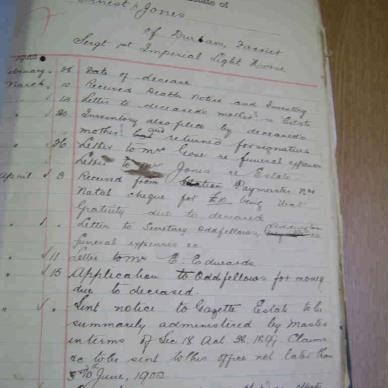 Ernest A Jones
of Durban, Farrier
Sergt 1st Imperial Light Horse
1902
February 25 Date of decease
March 10 Received Death Notice and Inventory
" 14 Letter to deceased's mother re Estate
" 20 Inventory also place by deceased's
mother and returned for signature
" 26 Letter to Mr Close re funeral expenses
" Letter to Mr Jones re Estate
April 3 Received from Paymaster
Natal cheque for £ being War
Gratuity due to deceased
" Letter to Secretary Oddfellows, re
funeral expenses &c
" 11 Letter to Mr E. Edwards
" 15 Application to Oddfellows for money
due to deceased.
" Sent notice to Gazette Estate to be
summarily administered by Master
in terms of Sec 18 Act 38. 1899. Claims
&c to be sent to this office not later than
5th June, 1902